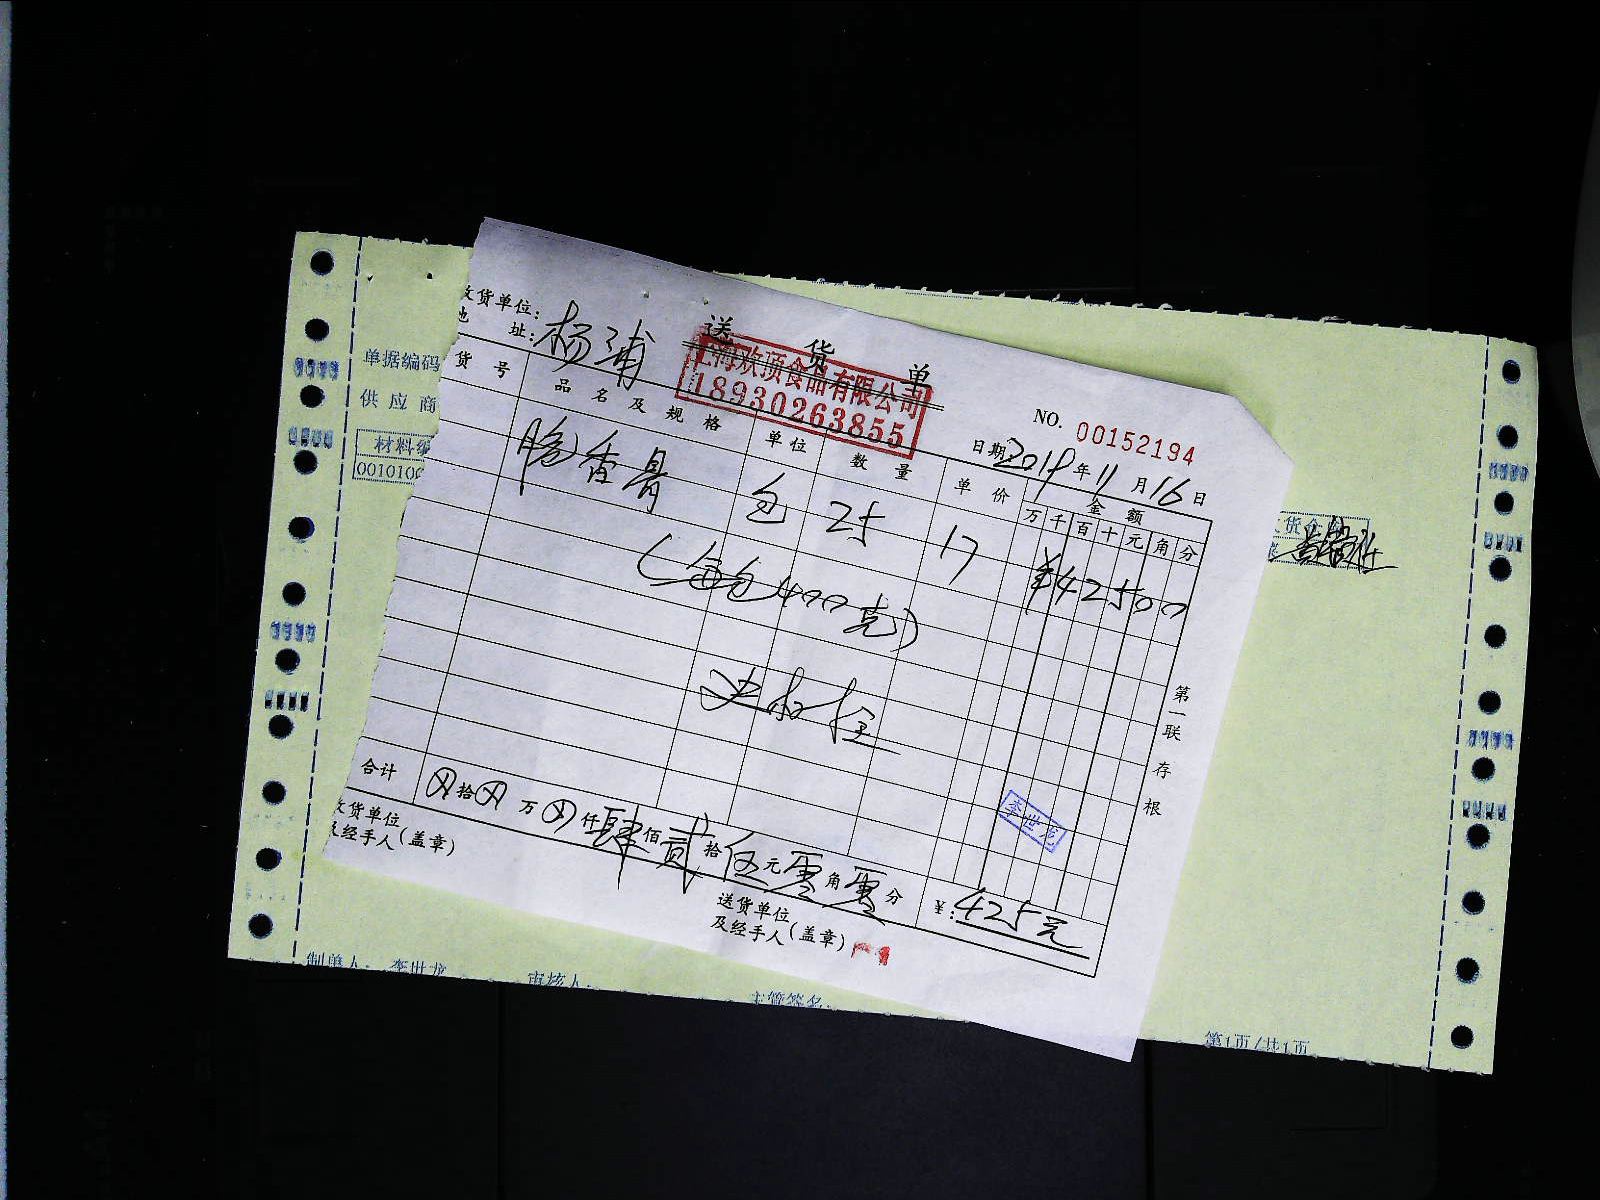 收货单位:
地 址: 杨浦
送 货 单
上海欢顶食品有限公司
18930263855
NO. 00152194
日期 2019 年 11 月 16 日
货 号 品 名 及 规 格 单 位 数 量 单 价 金 额
万 千 百 十 元 角 分
脆香骨 包 25 17 ¥42500
(每包400克)
第一联 存根
李世龙
合计 拾 万 仟 肆 佰 贰 拾 伍 元 零 角 零 分 ¥: 425元
收货单位
及经手人(盖章)
送货单位
及经手人(盖章)
单据编码
供 应 商
材料编
001010
制单人: 李世龙 审核人: 主管签名:
第1页/共1页